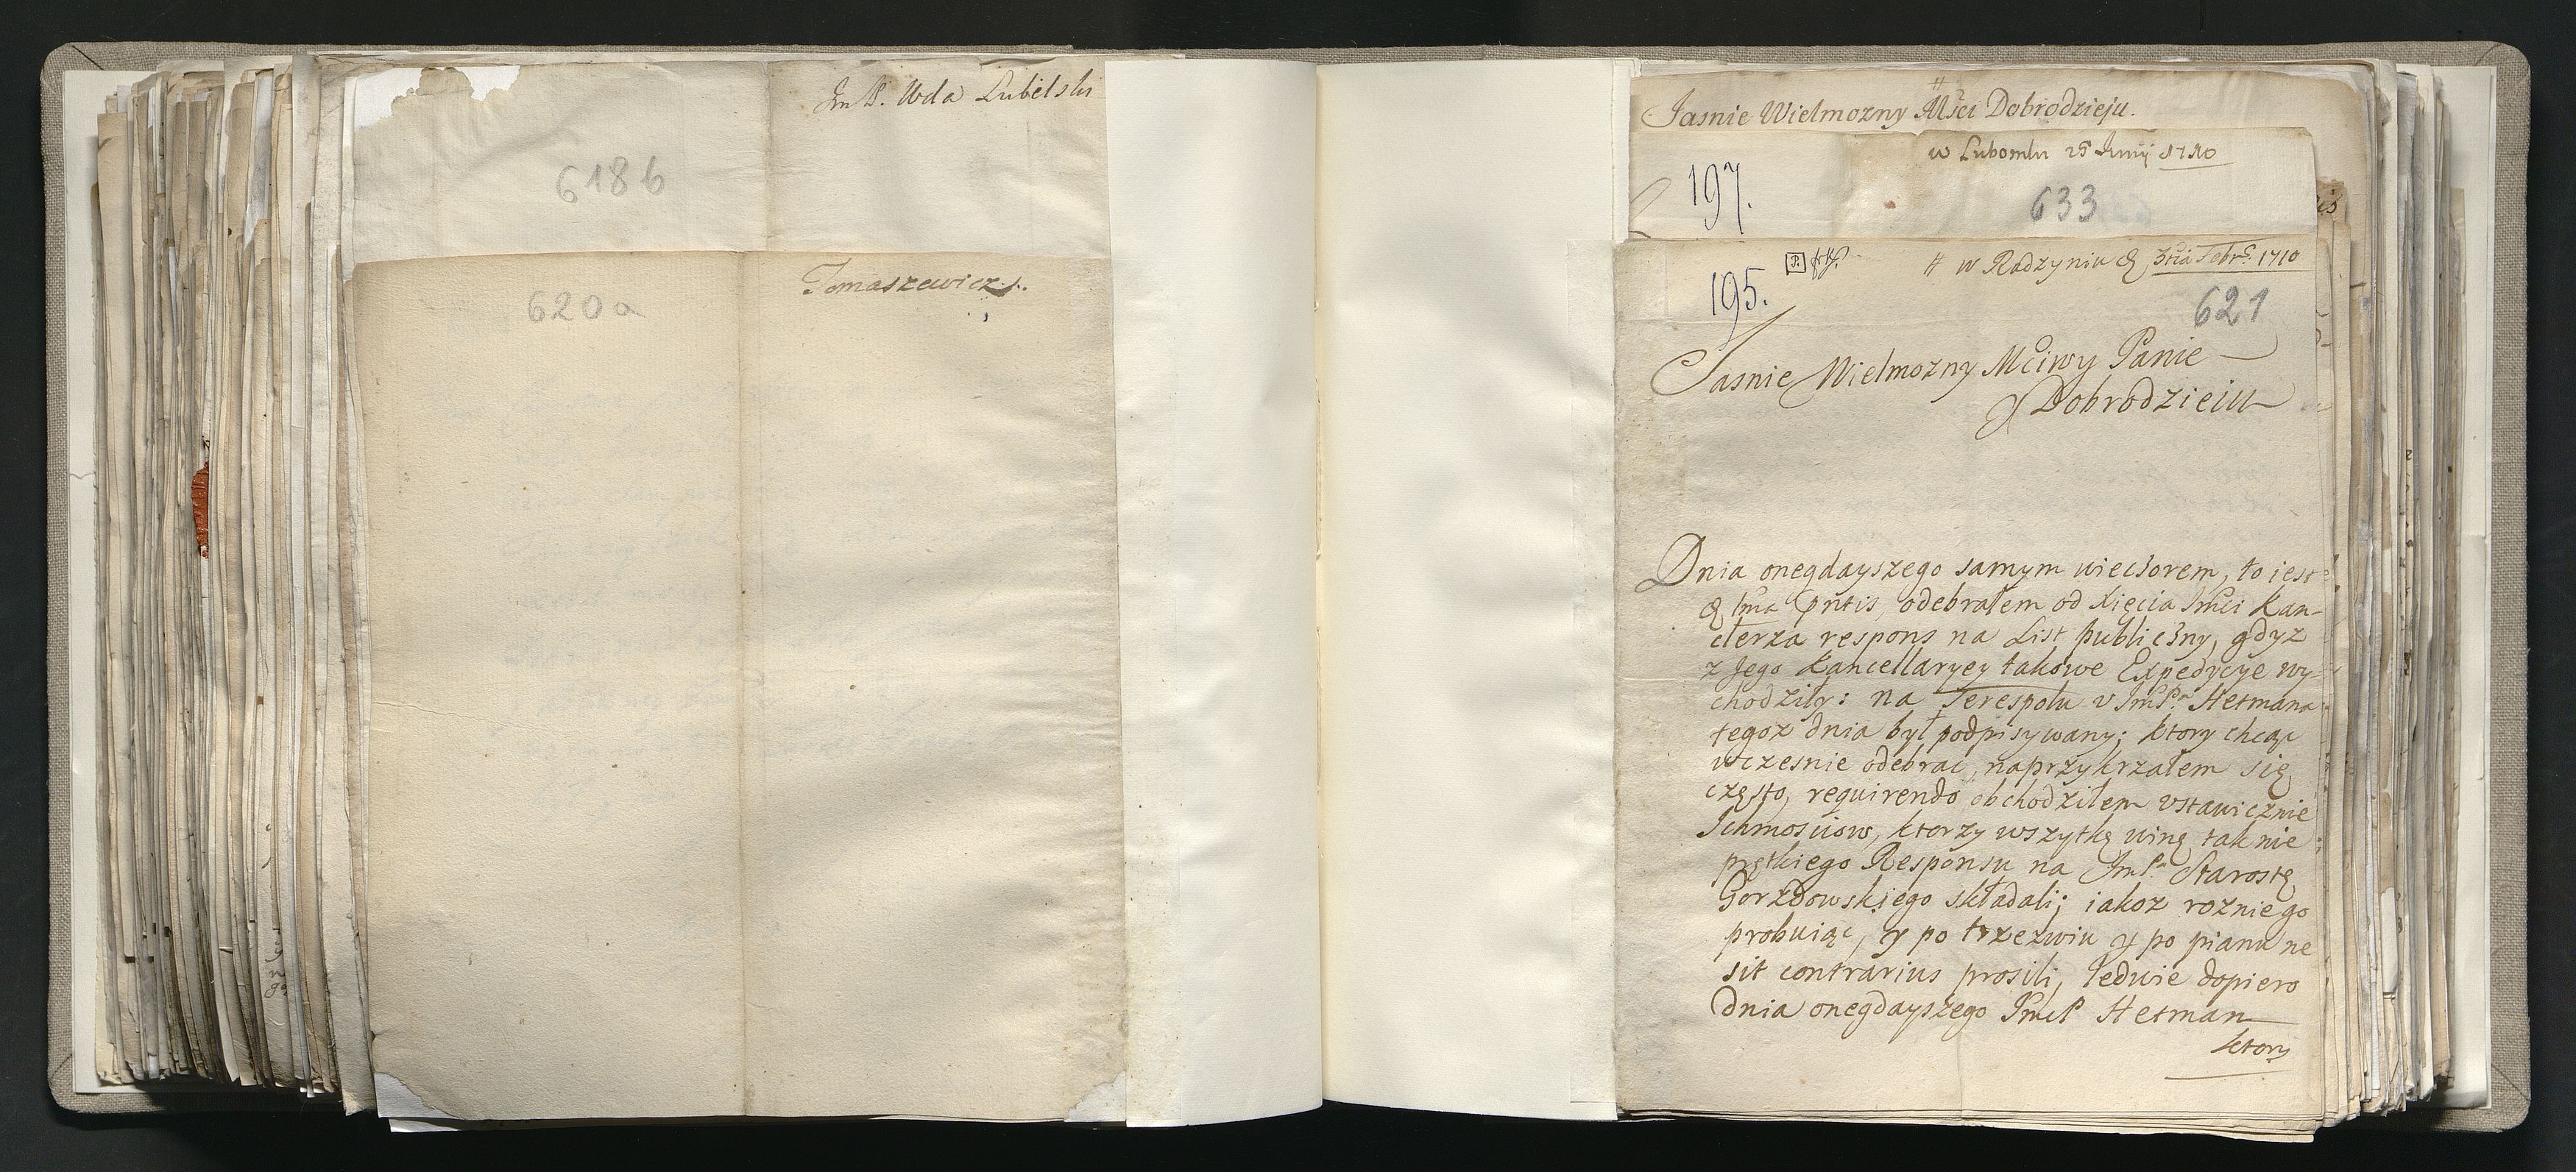 Jm P. Wda Lubelski
618b
Tomaszewicz.
620a
Jasnie Wielmozny Mści Dobrodzieju.
w Lubomlu 25 Junij 1710
197.
633
195.
w Radzyniu d 3tia Febr. 1710
621
Jasnie Wielmozny Mciwy Panie
y Dobrodzieiu
Dnia onegdayszego samym wieczorem, to iest
d 1ma pntis, odebrałem od Xięcia Jmci Kan-
clerza respons na List publiczny, gdyz
z Jego Kancellaryey takowe Expedycye wy-
chodziły: na Terespolu v JmPa Hetmana
tegoz dnia był podpisywany; ktory chcąc
wczesnie odebrac, naprzykrzałem się
często, requirendo obchodziłem vstawicznie
Ichmosciow, ktorzy wszytkę winę tak nie
prętkiego Responsu na JmPa Starostę
Gorzdowskiego składali; iakoz roznie go
probuiąc, y po trzezwiu y po pianu ne
sit contrarius prosili, ledwie dopiero
dnia onegdayszego JmcP Hetman
ktory